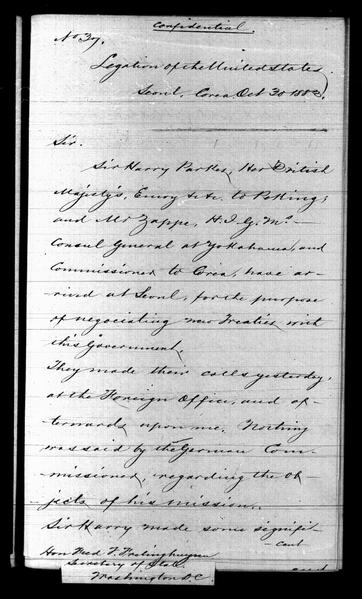 Confidential.
No 37.
Legation of the United States
Seoul, Corea Oct 30 1883.
Sir.
Sir Harry Parkes, Her British
Majesty's, Envoy &c. to Peking;
and Mr Zappe, H.I.G.Ms –
Consul General at Yokohama, and
Commissioner to Corea, have ar-
rived at Seoul, for the purpose
of negociating new Treaties with
this Government,
They made their calls yesterday,
at the Foreign Office, and af-
terwards upon me. Nothing
was said by the German Com-
missioner, regarding the ob-
jects of his mission.
Sir Harry made some signifi-
-cant
Hon Fred. T. Frelinghuysen
Secretary of State
Washington D.C.